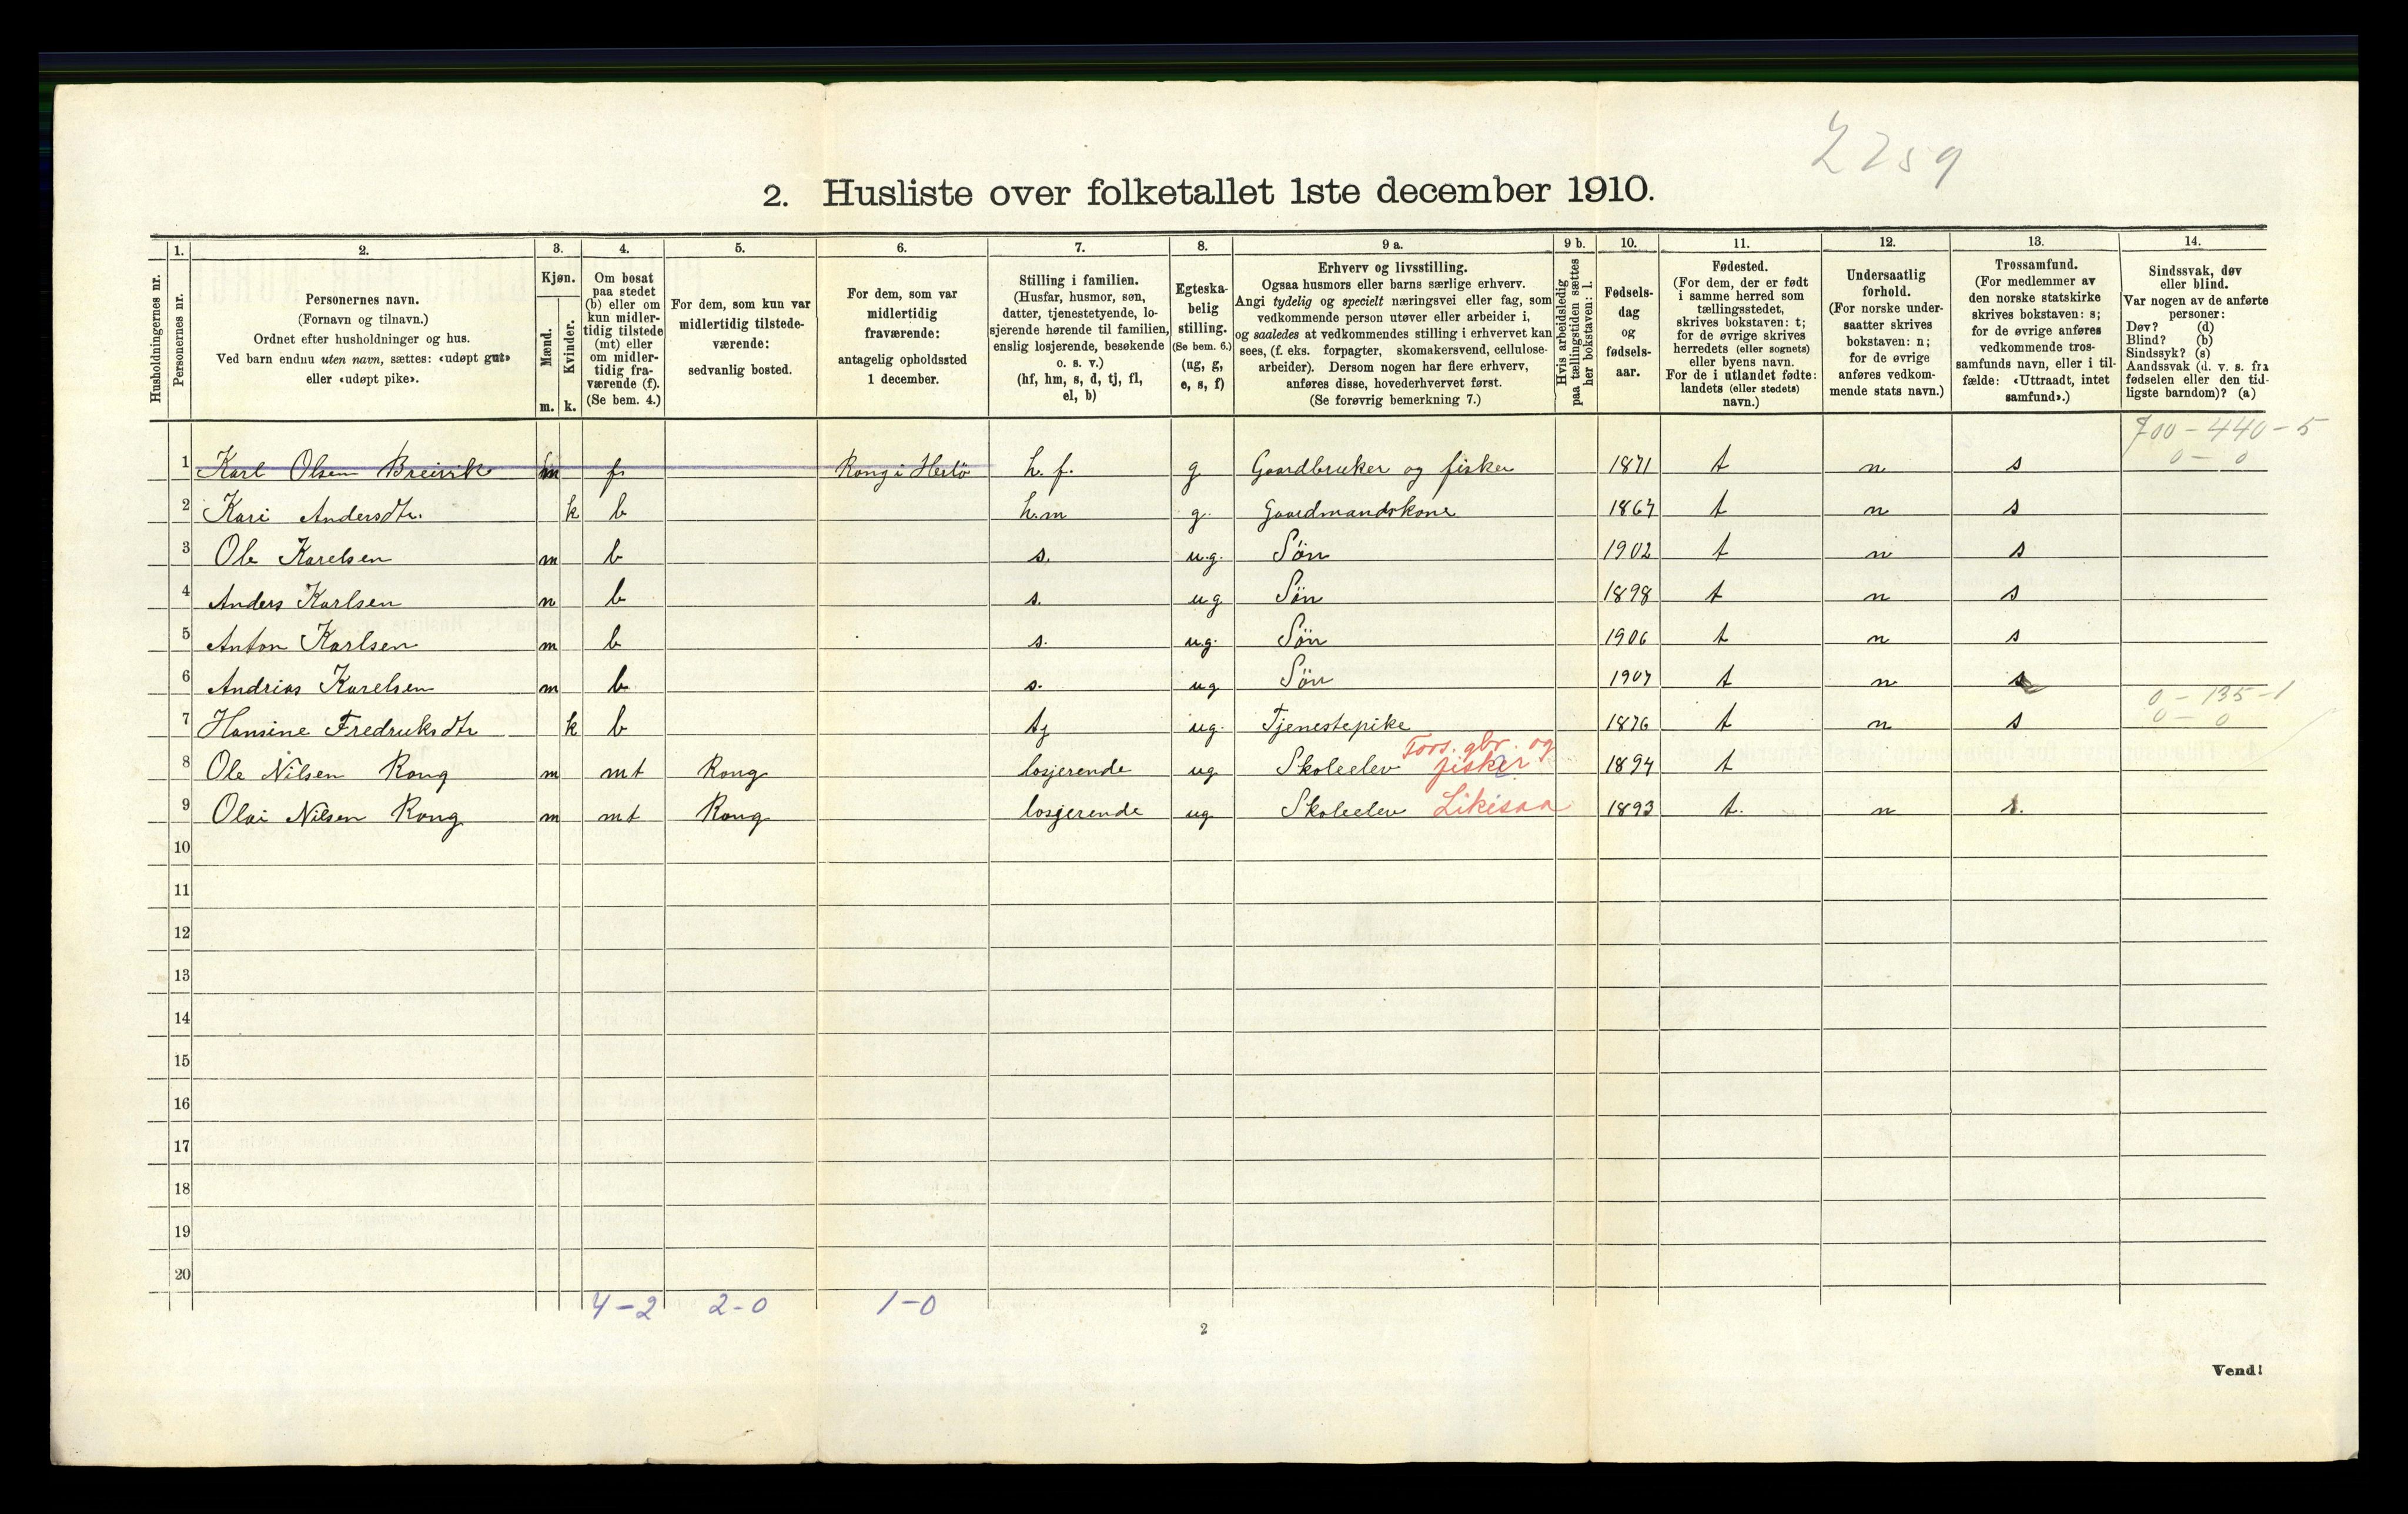 2759
2. Husliste over folketallet 1ste december 1910.
Husholdningernes nr.
1. Personernes nr.
2. Personernes navn. (Fornavn og tilnavn.) Ordnet efter husholdninger og hus. Ved barn endnu uten navn, sættes: «udøpt gut» eller «udøpt pike».
3. Kjøn. Mænd. m. Kvinder. k.
4. Om bosat paa stedet (b) eller om kun midler-tidig tilstede (mt) eller om midler-tidig fra-værende (f). (Se bem. 4.)
5. For dem, som kun var midlertidig tilstede-værende: sedvanlig bosted.
6. For dem, som var midlertidig fraværende: antagelig opholdssted 1 december.
7. Stilling i familien. (Husfar, husmor, søn, datter, tjenestetyende, lo-sjerende hørende til familien, enslig losjerende, besøkende o. s. v.) (hf, hm, s, d, tj, fl, el, b)
8. Egteska-belig stilling. (Se bem. 6.) (ug, g, e, s, f)
9 a. Erhverv og livsstilling. Ogsaa husmors eller barns særlige erhverv. Angi tydelig og specielt næringsvei eller fag, som vedkommende person utøver eller arbeider i, og saaledes at vedkommendes stilling i erhvervet kan sees, (f. eks. forpagter, skomakersvend, cellulose-arbeider). Dersom nogen har flere erhverv, anføres disse, hovederhvervet først. (Se forøvrig bemerkning 7.)
9 b. Hvis arbeidsledig paa tællingstiden sættes her bokstaven: l.
10. Fødsels-dag og fødsels-aar.
11. Fødested. (For dem, der er født i samme herred som tællingsstedet, skrives bokstaven: t; for de øvrige skrives herredets (eller sognets) eller byens navn. For de i utlandet fødte: landets (eller stedets) navn.)
12. Undersaatlig forhold. (For norske under-saatter skrives bokstaven: n; for de øvrige anføres vedkom-mende stats navn.)
13. Trossamfund. (For medlemmer av den norske statskirke skrives bokstaven: s; for de øvrige anføres vedkommende tros-samfunds navn, eller i til-fælde: «Uttraadt, intet samfund».)
14. Sindssvak, døv eller blind. Var nogen av de anførte personer: Døv? (d) Blind? (b) Sindssyk? (s) Aandssvak (d. v. s. fra fødselen eller den tid-ligste barndom)? (a)
700 - 440 - 5
0 - 0
1 Karl Olsen Breivik m f. Rong i Herlö h. f. g. Gaardbruker og fisker 1871 t n s
2 Kari Andersdtr. k b h.m g. Gaardmandskone 1867 t n s
3 Ole Karelsen m b s. u.g. Sön 1902 t n s
4 Anders Karlsen m b s. ug Sön 1898 t n s
5 Anton Karlsen m b s. ug. Sön 1906 t n s
6 Andrias Karelsen m b s. ug Sön 1907 t n s
0 - 135 - 1
0 - 0
7 Hansine Fredruksdtr k b tj ug. Tjenestepike 1876 t n s
8 Ole Nilsen Rong m mt Rong losjerende ug Skoleelev Fors. gbr. og fisker 1894 t
9 Olai Nilsen Rong m mt Rong losjerende ug Skoleelev Likesaa 1893 t. n s.
10
11
12
13
14
15
16
17
18
19
20
4-2 2-0 1-0
2
Vend!